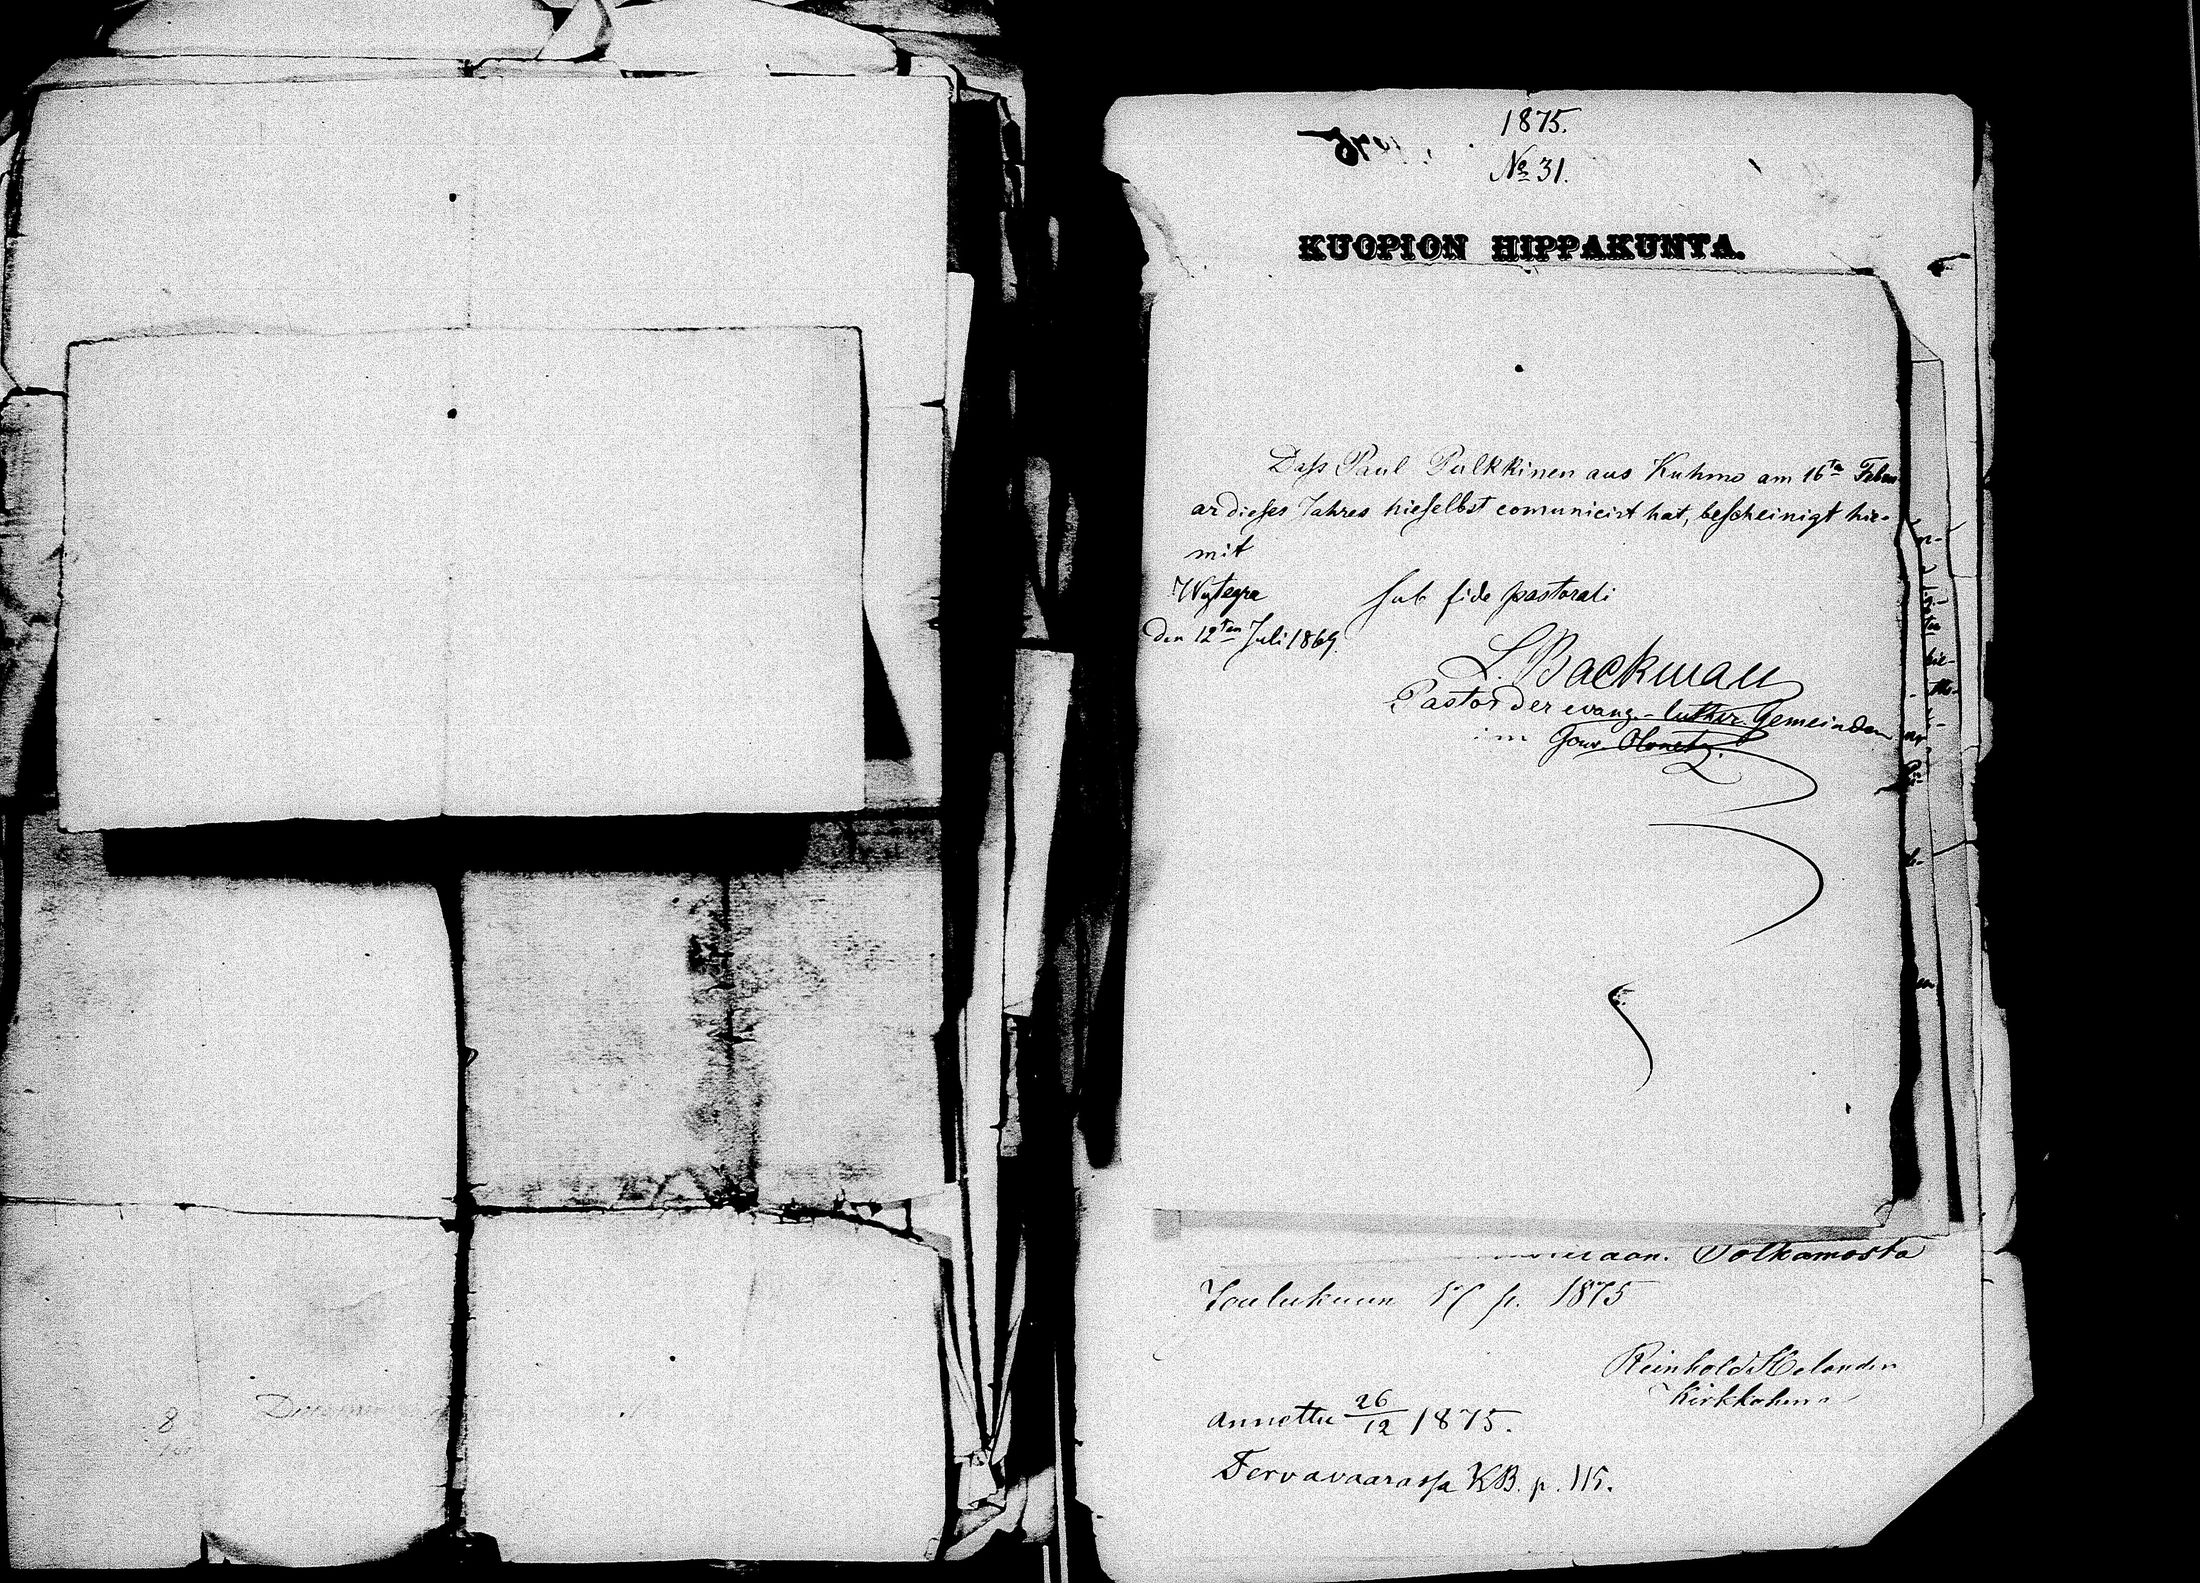 1875.
No 31.
KUOPION HIPPAKUNTA.
Daſs Paul Pulkkinen aus Kuhmo am 16ten Febru
ar dieſes Jahres hieſelbst comunicirt hat, beſcheinigt hie-
mit
Wytegra sub fide pastorali
den 12ten Juli 1869.
L. Backman
Pastor der evang.-luther. Gemeinden
im Gouv. Olonetz.
Polkamosta
Joulukuun 17 p. 1875
Reinhold Helander
Kirkkoherra
annettu 26/12 1875.
Tervavaaraſsa KB. p. 115.